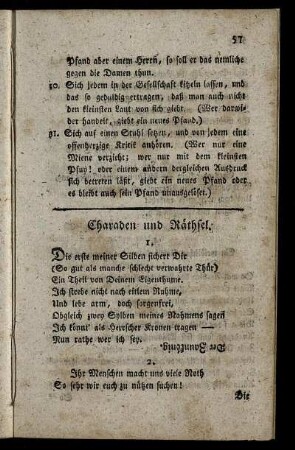 57
Pfand aber einem Herrn̄, so soll er das nemliche
gegen die Damen thun.
50. Sich jedem in der Gesellschaft kitzeln lassen, und
das so geduldig ertragen, daß man auch nicht
den kleinsten Laut von sich giebt. (Wer darwi-
der handelt, giebt ein neues Pfand.)
51. Sich auf einen Stuhl setzen, und von jedem eine
offenherzige Kritik anhören. (Wer nur eine
Miene verzieht; wer nur mit dem kleinsten
Pfuy! oder einem andern dergleichen Ausdruck
sich betreten läßt, giebt ein neues Pfand oder
es bleibt auch sein Pfand unausgelöset.)
Charaden und Räthsel.
1.
Die erste meiner Silben sichert Dir
(So gut als manche schlecht verwahrte Thür)
Ein Theil von Deinem Eigenthume.
Ich strebe nicht nach eitlem Ruhme,
Und lebe arm, doch sorgenfrei,
Obgleich zwey Sylben meines Nahmens sagen
Ich könnt als Herrscher Kronen tragen —
Nun rathe wer ich sey.
Der Zaunkönig.
2.
Ihr Menschen macht uns viele Noth
So sehr wir euch zu nützen suchen!
Die